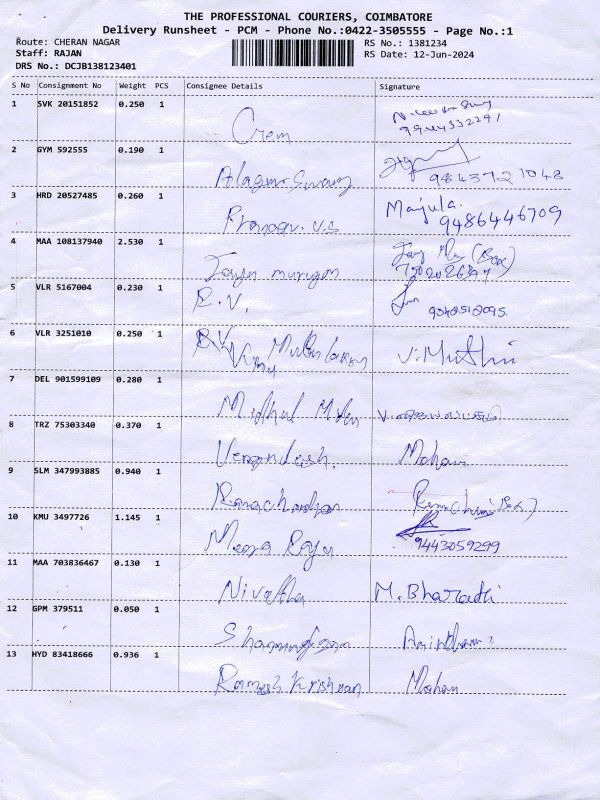 THE PROFESSIONAL COURIERS, COIMBATORE
Delivery Runsheet - PCM - Phone No.:0422-3505555 - Page No.:1
Route: CHERAN NAGAR RS No.: 1381234
Staff: RAJAN RS Date: 12-Jun-2024
DRS No.: DCJB138123401
S No Consignment No Weight PCS Consignee Details Signature
1 SVK 20151852 0.250 1
2 GYM 592555 0.190 1
9843721048
3 HRD 20527485 0.260 1 Manjula.
9486446709
4 MAA 108137940 2.530 1 (Box)
murugan
5 VLR 5167004 0.230 1 R.V.
6 VLR 3251010 0.250 1 V.Muthu
7 DEL 901599109 0.280 1
8 TRZ 75303340 0.370 1 Mohan
9 SLM 347993885 0.940 1
Ramachandran
10 KMU 3497726 1.145 1
Meera Raju 9443059299
11 MAA 703836467 0.130 1
Nivetha M.Bharathi
12 GPM 379511 0.050 1
13 HYD 83418666 0.936 1
Ramesh Krishnan Mohan